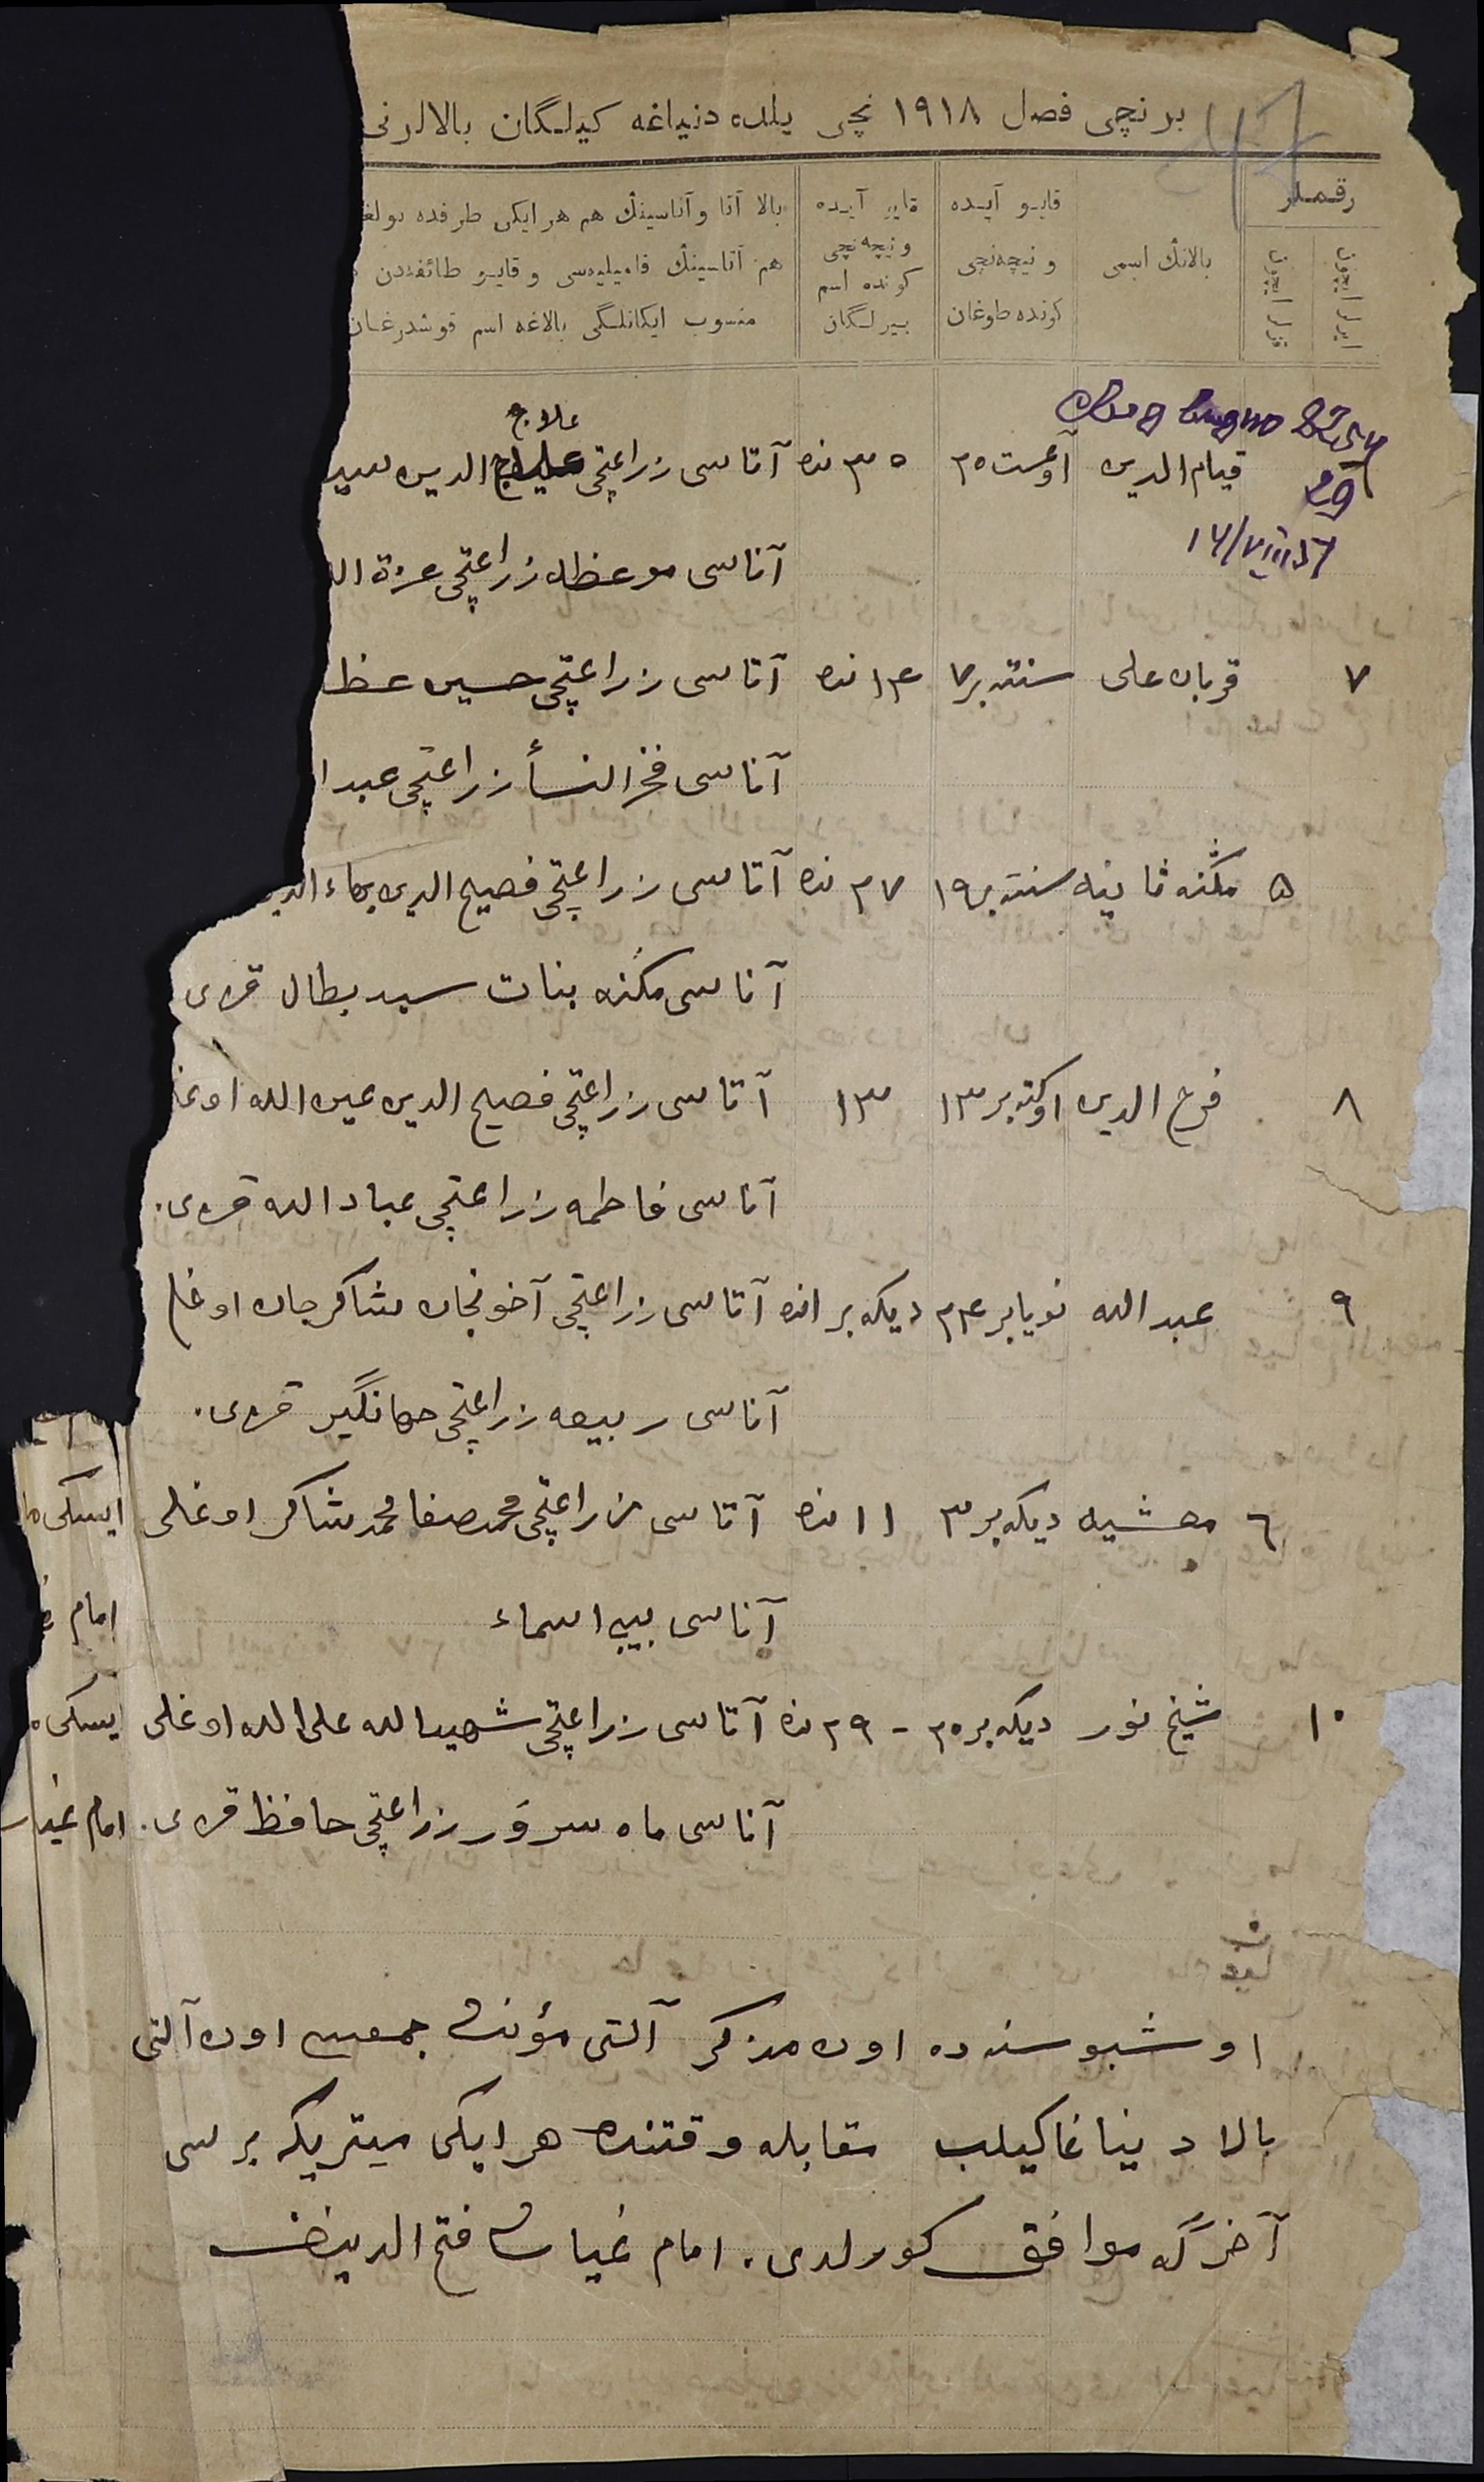 برنچی فصل ١٩١٨ نچی یلده دنیاغه کیلگان بالالرنی
رقملر
ایرلر ایچون
قزلر ایچون
بالانڭ اسمی
قایو آیده
و نیچه‌نچی
کونده طوغان
قایو آیده
و نیچه‌نچی
کونده اسم
بیرلگان
بالا آتا و آناسینڭ هم هر ایکی طرفده بولغ
هم آتاسینڭ فامیلیه‌سی و قایو طائفه‌دن
منسوب ایکانلگی بالاغه اسم قوشدرغان
علاج
قیام الدین آوغست ٢٥ ٣٠ نده آتاسی زراعتچی علاج الدین سید
١٧/VIII
آناسی موعظه زراعتچی عزة الل
٧ قربان علی سنتبر ٧ ١٤ نده آتاسی زراعتچی حسین عظ
آناسی فخر النسأ زراعتچی عبد ا
٥ مکنه ثانیه سنتبر ١٩ ٢٧ نده آتاسی زراعتچی فصیح الدین بهاء الدی
آناسی مکنه بنات سید بطال قزی
٨ فرح الدین اوکتبر ١٣ ١٣ آتاسی زراعتچی فصیح الدین عین الله اوغل
آناسی فاطمه زراعتچی عباد الله قزی.
٩ عبد الله نویابر ٢٤ دیکه‌بر ١نده آتاسی زراعتچی آخونجان شاکرجان اوغلی
آناسی ربیعه زراعتچی جهانگیر قزی.
٦ معشیه دیکه‌بر ٣ ١١ نده آتاسی زراعتچی محمد صفا محمد شاکر اوغلی ایسکی
آناسی بیبی اسماء امام
١٠ شیخ نور دیکه‌بر ٢٠ - ٢٩ نده آتاسی زراعتچی شهید الله علی الله اوغلی ایسکی
آناسی ماه سرور زراعتچی حافظ قزی. امام غیاث
اوشبو سنه‌ده اون مذکر آلتی مؤنث جمعسی اون آلتی
بالا دنیاغا کیلب مقابله وقتنده هر ایکی میتریکه برسی
آخرگه موافق کورلدی. امام غیاث فتح الدینف